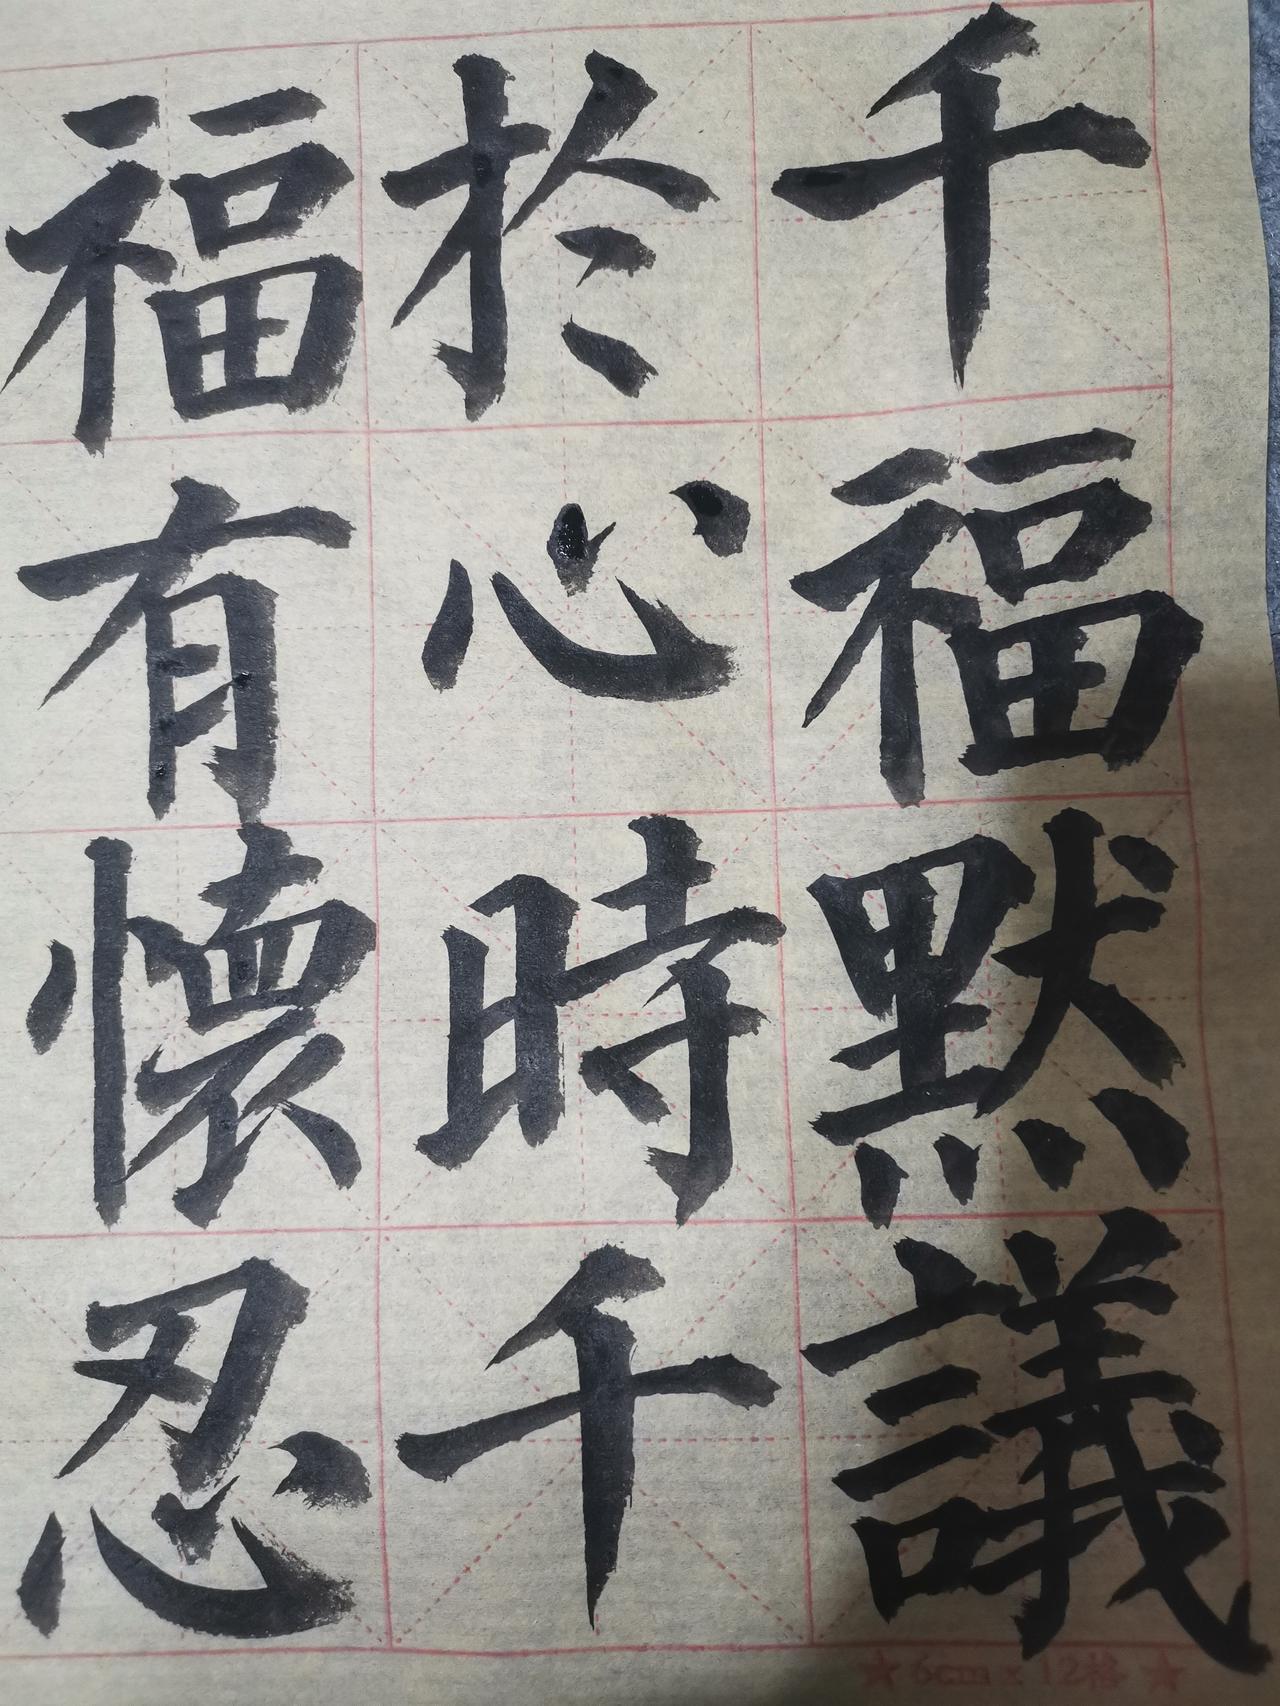 千福默議
於心時千
福有懷忍
★ 6cm x 12格 ★